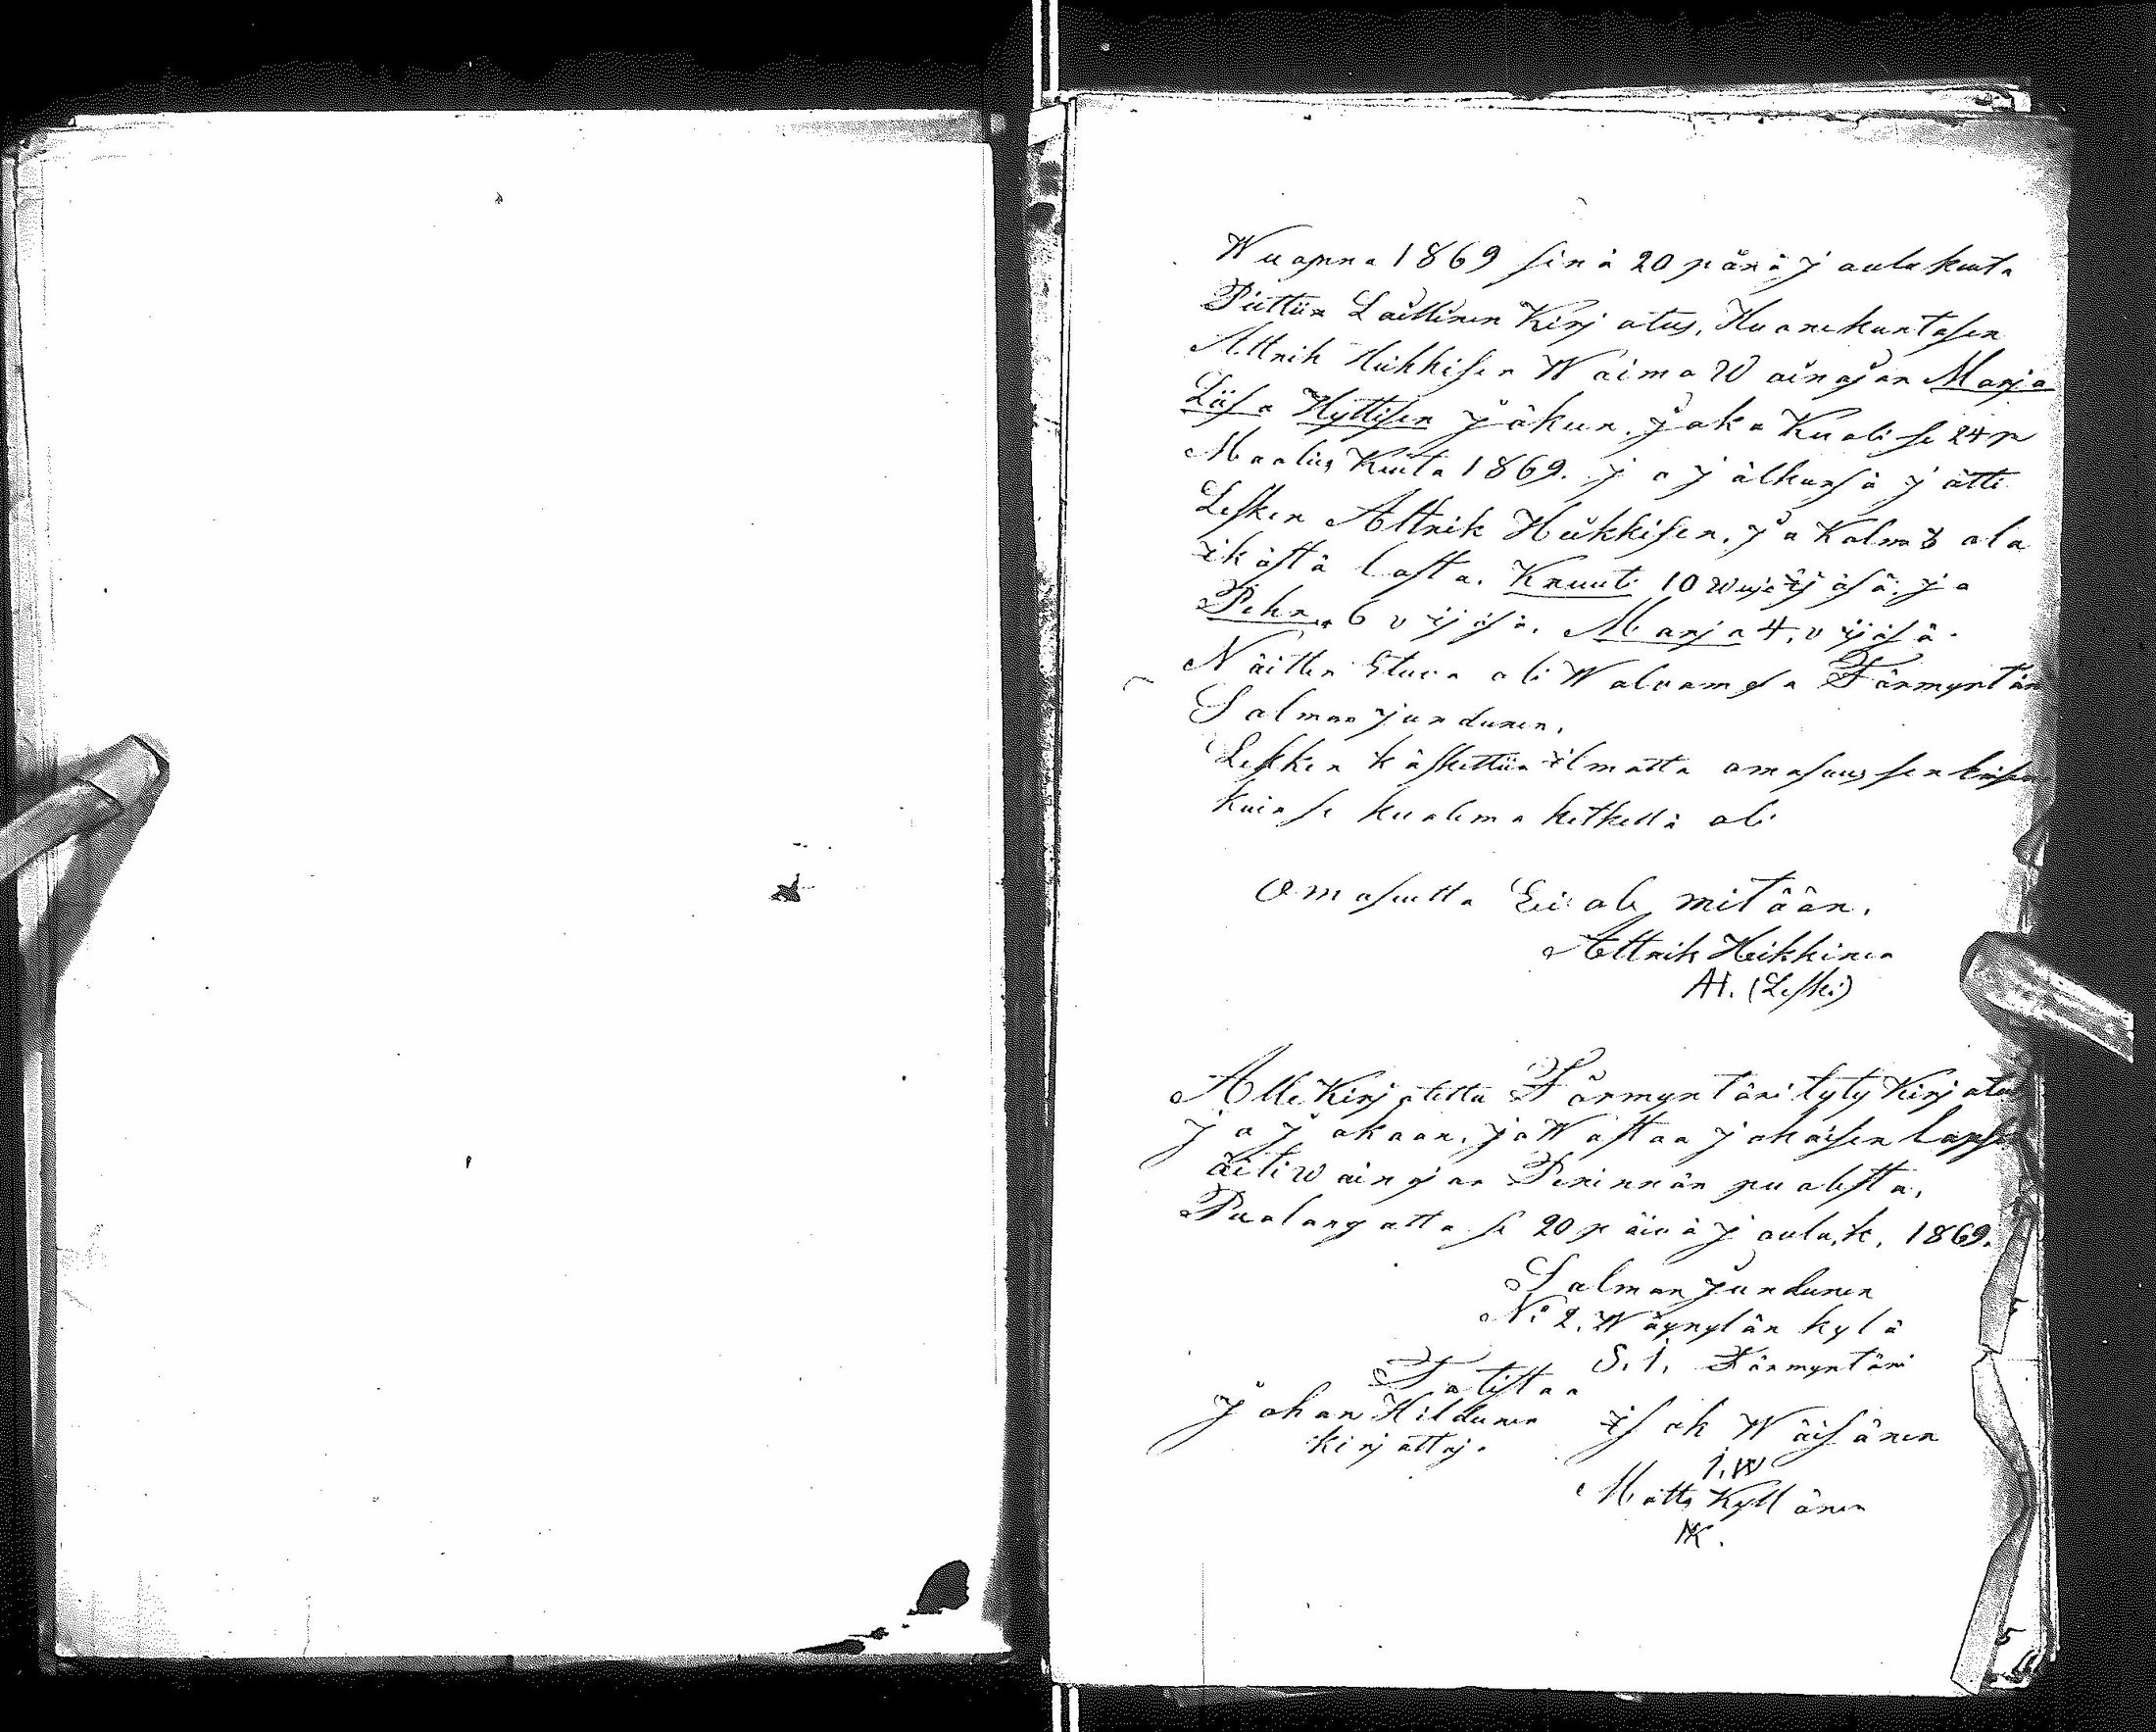 Wuonna 1869 sinä 20 pänä joulukuuta
Piettiin Laillinen Kirjotus, Huonekuntasen
Attrik Heikkisen Waimo Wainajan Marja
Liisa Hyttisen jäkun, joka Kuoli se 24 p
Maalius Kuuta 1869. ja jälkensä jätti
Lesken Attrik Heikkisen, ja Kolme 3 ala
ikästä lasta. Knuuti 10 wuj ijäsä, ja
Pehr, 6 v ijäsä, Marja 4, v ijäsä.
Näitten Etuva oli Walvomasa Förmyntäri
Salmon jundunen,
Lesken käskettiin ilmotta omasuus senlaisena
kuin se kuolema hetkellä oli
Omasutta Ei ole mitään,
Attrik Heikkinen
AH. (Leski)
Alle Kirjotettu Förmyntäri tyty Kirjotus
ja jakoon, ja Wastaa jokaisen lapsen
äiti wainajan Perinnän puolesta,
Puolangalla se 20 päivä joulu,k, 1869.
Salmon jundunen
No 2, Wäyrylän kylä
S. J. Förmyntäri
Totistaa
Johan Hildunen
kirjottaj.
Isak Wäisänen
I. W
Matts Kyllönen
MK.